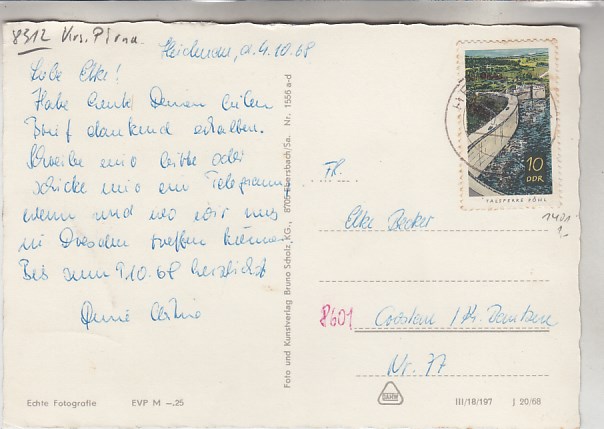 8312 Krs. Pirna.
Heidenau, d. 4.10.68
Liebe Elke!
Habe heute Deinen lieben
Brief dankend erhalten.
Schreibe mir bitte oder
schicke mir ein Telegramm
wann und wo wir uns
in Dresden treffen können
Bis zum 9.10.68 herzlichst
Deine
Echte Fotografie EVP M –.25
Foto und Kunstverlag Bruno Scholz, KG., 8705 Ebersbach/Sa. Nr. 1556 a-d
10
DDR
TALSPERRE PÖHL
1401
Frl.
Elke Becker
8601 Coblenz / Kr. Bautzen
Nr. 77
III/18/197 J 20/68